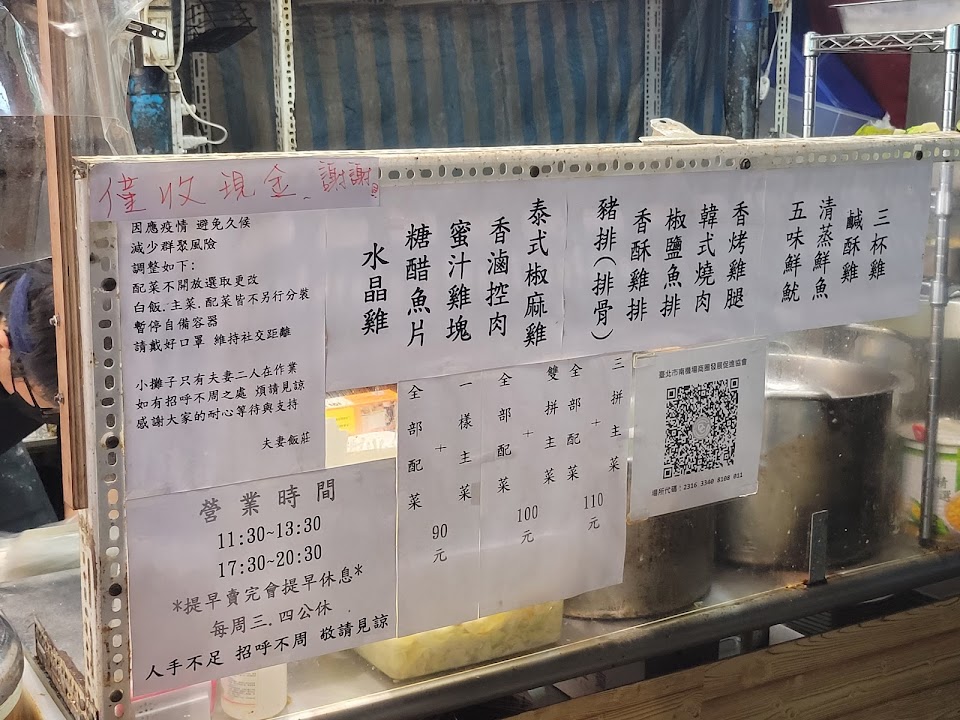 僅收現金、謝謝!
因應疫情 避免久候
減少群聚風險
調整如下:
配菜不開放選取更改
白飯.主菜.配菜皆不另行分裝
暫停自備容器
請戴好口罩 維持社交距離
小攤子只有夫妻二人在作業
如有招呼不周之處 煩請見諒
感謝大家的耐心等待與支持
夫妻飯莊
營業時間
11:30~13:30
17:30~20:30
*提早賣完會提早休息*
每周三.四公休
人手不足 招呼不周 敬請見諒
三杯雞
鹹酥雞
清蒸鮮魚
五味鮮魷
香烤雞腿
韓式燒肉
椒鹽魚排
香酥雞排
豬排(排骨)
泰式椒麻雞
香滷控肉
蜜汁雞塊
糖醋魚片
水晶雞
三拼主菜
110元
雙拼主菜
+
全部配菜
100元
一樣主菜
+
全部配菜
90元
臺北市南機場商圈發展促進協會
場所代碼:2316 3340 8108 011